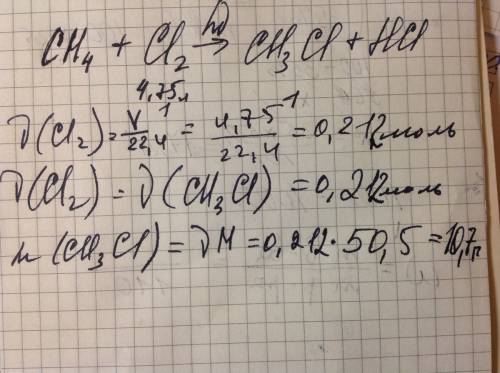 CH₄ + Cl₂ →hν CH₃Cl + HCl
4,75л
ν(Cl₂) = V/22,4 = 4,75/22,4 = 0,212моль
ν(Cl₂) = ν(CH₃Cl) = 0,212моль
m(CH₃Cl) = νM = 0,212·50,5 = 10,7г